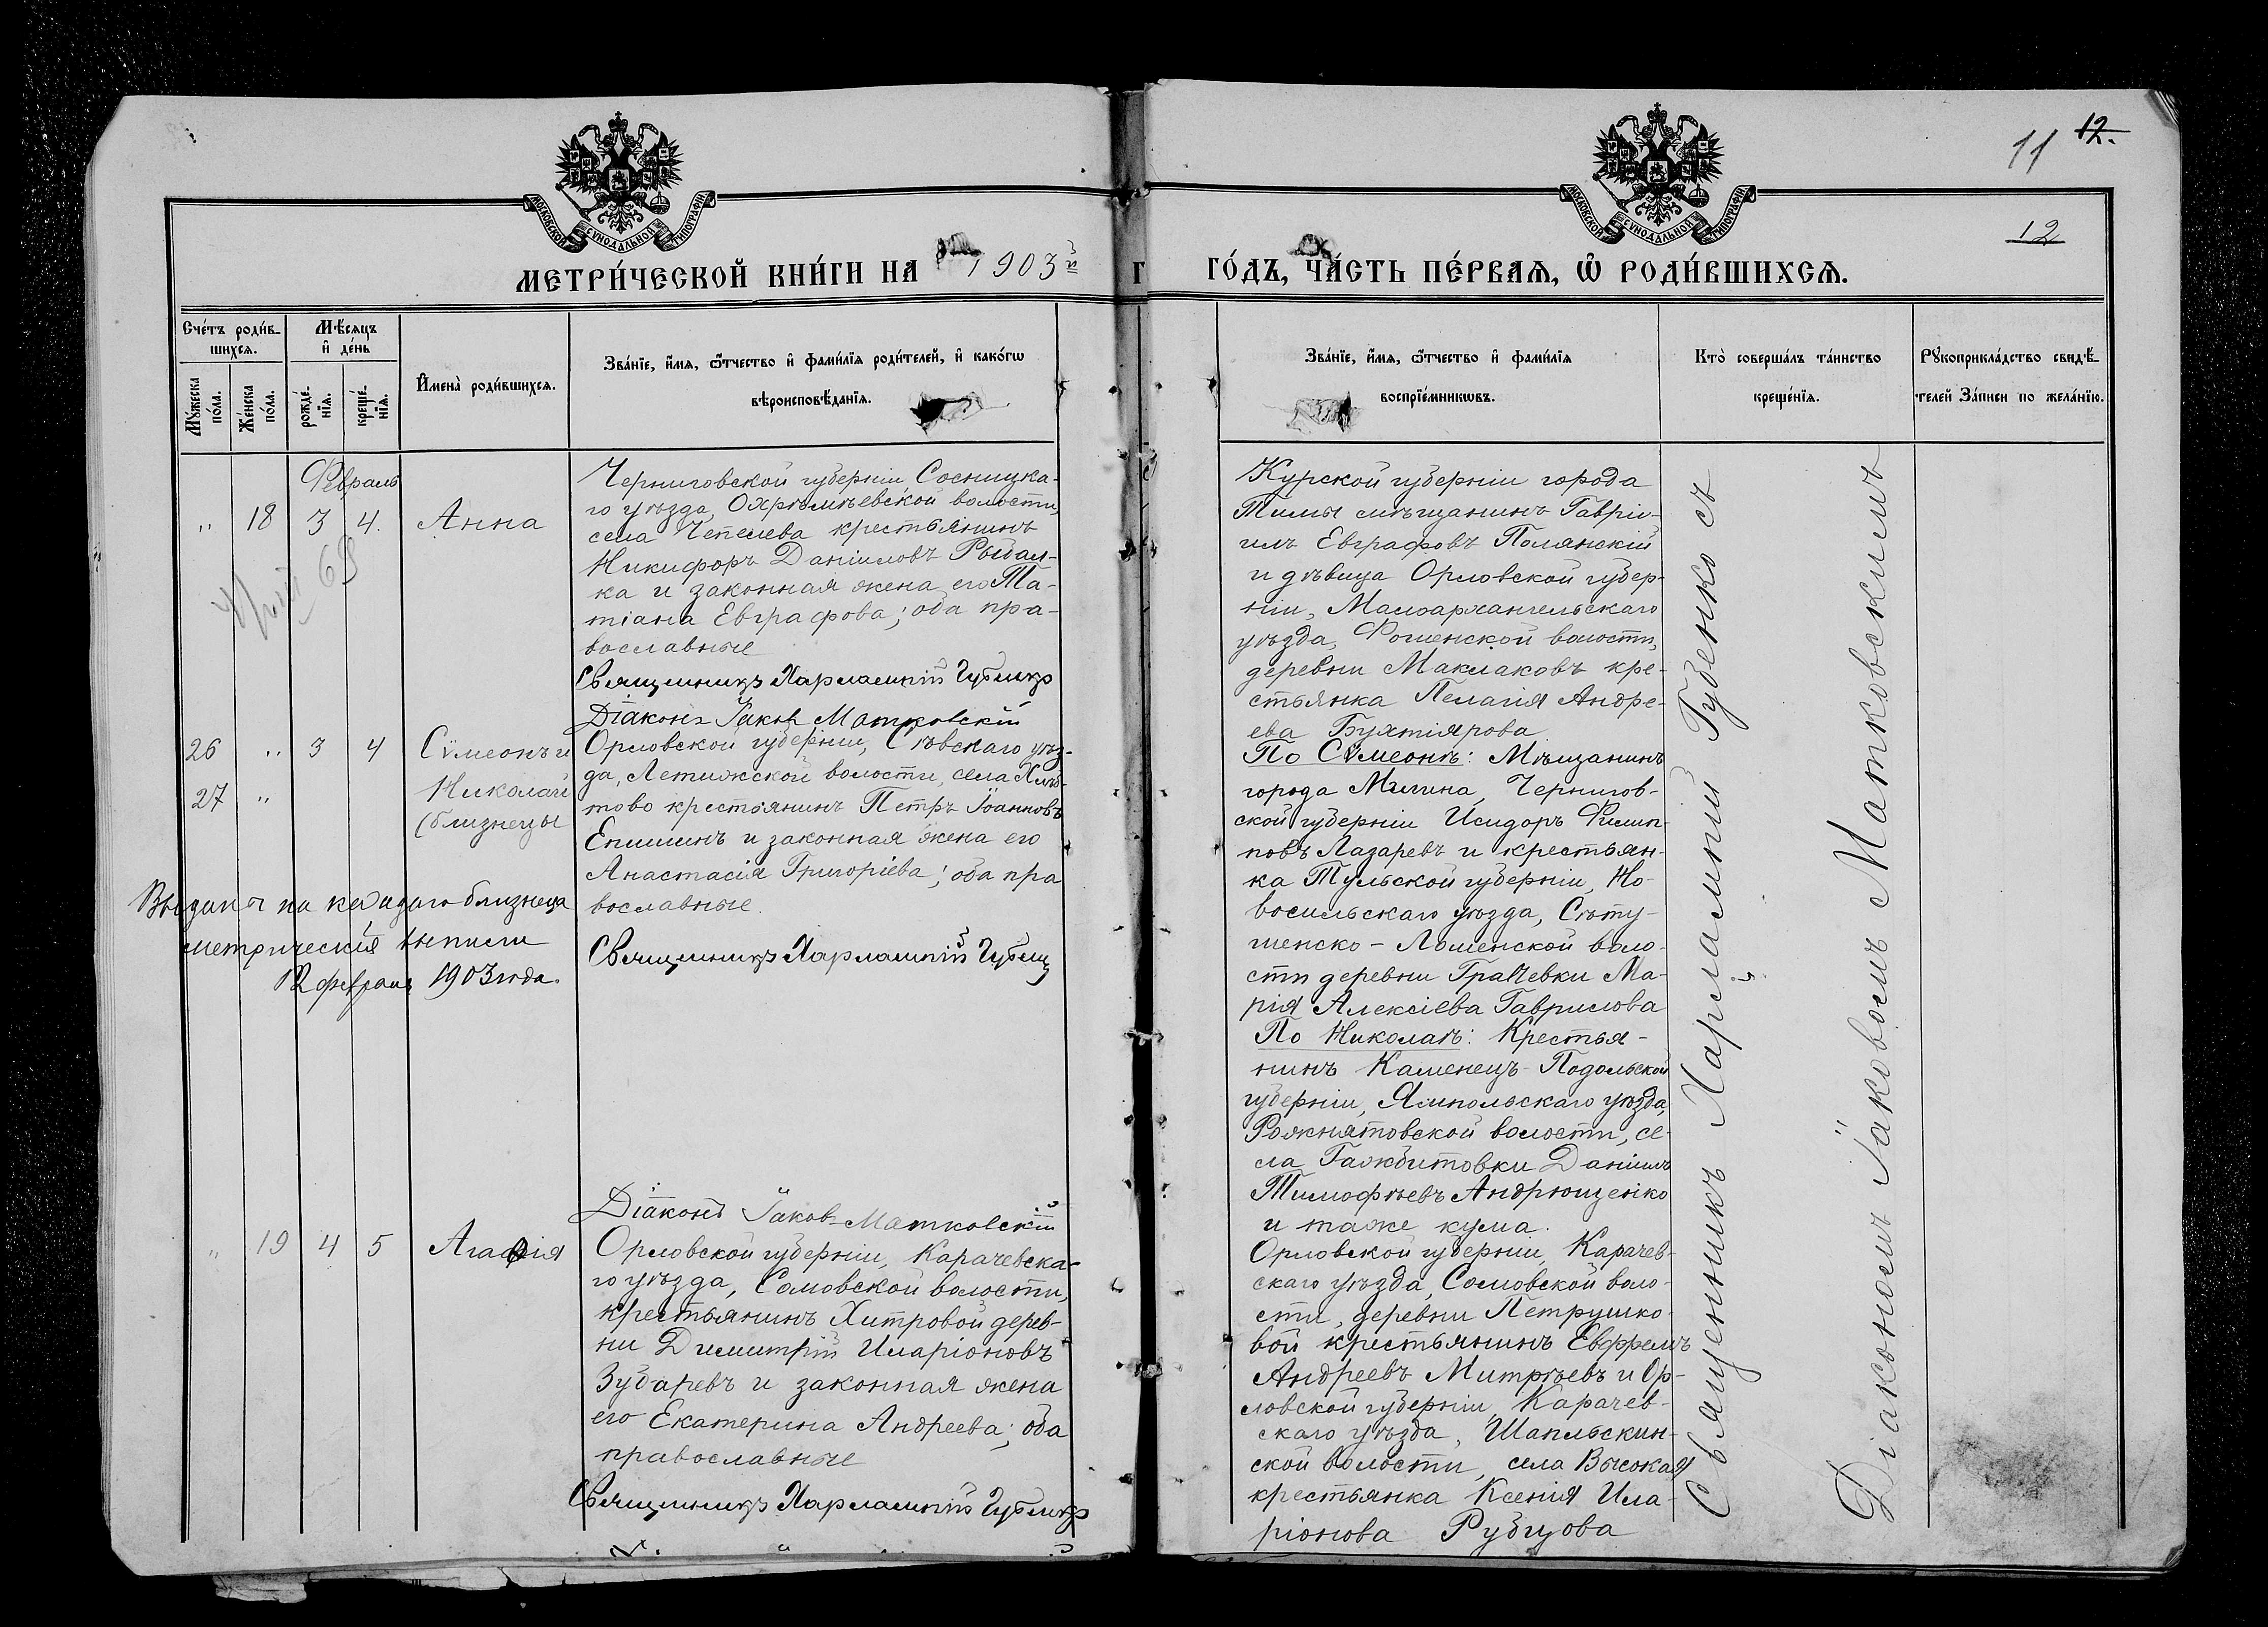 11 12.
12
МОСКОВСКОЙ СѴНОДАЛЬНОЙ ТИПОГРАФІИ
МОСКОВСКОЙ СѴНОДАЛЬНОЙ ТИПОГРАФІИ
МЕТРИ́ЧЕСКОЙ КНИ́ГИ НА 1903й
ГО́ДЪ, ЧА́СТЬ ПЕ́РВАѦ, Ѡ РОДИ́ВШИХСѦ.
Сче́тъ роди́в-
шихсѧ.
Мѣ́сѧцъ
и҆ де́нь
Мꙋ́жеска
по́ла.
Же́нска
по́ла.
рожде́-
нїѧ.
креще́-
нїѧ.
И҆мена̀ роди́вшихсѧ.
Зва́нїе, и҆́мѧ, ѻ҆́тчество и҆ фами́лїѧ роди́телей, и҆ како́гѡ
вѣроисповѣ́данїѧ.
Зва́нїе, и҆́мѧ, ѻ҆́тчество и҆ фами́лїѧ
воспрїе́мникѡвъ.
Кто̀ соверша́лъ та́инство
креще́нїѧ.
Рꙋкоприкла́дство свидѣ́-
телей За́писи по жела́нїю.
Февраль
„ 18 3 4. Анна
Черниговской губерніи Сосницка-
го уѣзда, Охрѣмѣевской волости,
села Чепелева крестьянинъ
Никифоръ Даніиловъ Рыбал-
ка и законная жена его Та-
тіана Евграфова; оба пра-
вославные
Священникъ Харлампій Губенко
Діаконъ Іаковъ Матковскій
Курской губерніи города
Тимы мѣщанинъ Гаврі-
илъ Евграфовъ Полянскій
и дѣвица Орловской губер-
ніи, Малоархангельскаго
уѣзда, Фошенской волости,
деревни Маклаковъ кре-
стьянка Пелагія Андре-
ева Бухтіярова
26 „ 3 4 Сѵмеонъ и
27 „ Николай
(близнецы
Орловской губерніи, Сѣвскаго уѣз-
да, Летижской волости, села Хлѣ-
тово крестьянинъ Петръ Іоанновъ
Епишинъ и законная жена его
Анастасія Григоріева; оба пра
вославные.
Священникъ Харлампій Губенко
Діаконъ Іаковъ Матковскій
Выданы на каждаго близнеца
метрическія выписи
12 февраля 1903 года.
По Сѵмеонѣ: Мѣщанинъ
города Мглина, Чернигов-
ской губерніи Исидоръ Филип-
повъ Лазаревъ и крестьян-
ка Тульской губерніи, Но-
восильскаго уѣзда, Сѣту-
шенско-Ломенской воло-
сти деревни Грачевки Ма-
рія Алексіева Гаврилова
По Николаѣ: Крестья-
нинъ Каменецъ-Подольской
губерніи, Ямпольскаго уѣзда,
Рожнятовской волости, се-
ла Гажбитовки Даніилъ
Тимофѣевъ Андрющенко
и таже кума.
„ 19 4 5 Агаѳія
Орловской губерніи, Карачевска-
го уѣзда, Сомовской волости,
крестьянинъ Хитровой дерев-
ни Димитрій Иларіоновъ
Зубаревъ и законная жена
его Екатерина Андреева; оба
православные
Священникъ Харлампій Губенко
Орловской губерніи, Карачев-
скаго уѣзда, Сомовской воло-
сти, деревни Петрушко-
вой крестьянинъ Евфремъ
Андреевъ Митрѣевъ и Ор-
ловской губерніи, Карачев-
скаго уѣзда, Шапльскин-
ской волости, села Высокая
крестьянка Ксенія Ила-
ріонова Рубцова
Священникъ Харлампій Губенко съ
Діакономъ Іаковомъ Матковскимъ